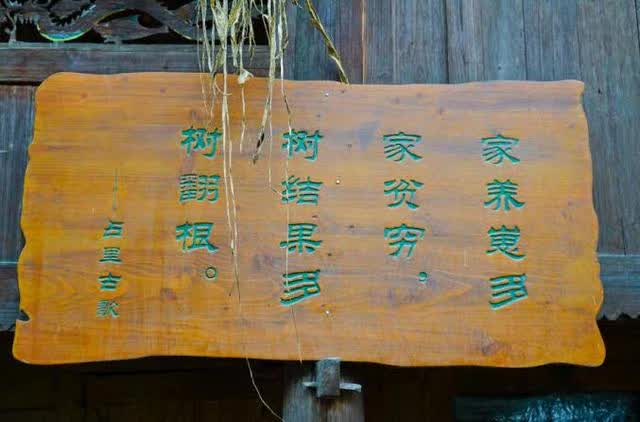 家养崽多
家贫穷。
树结果多
树翻根。
——占里古歌